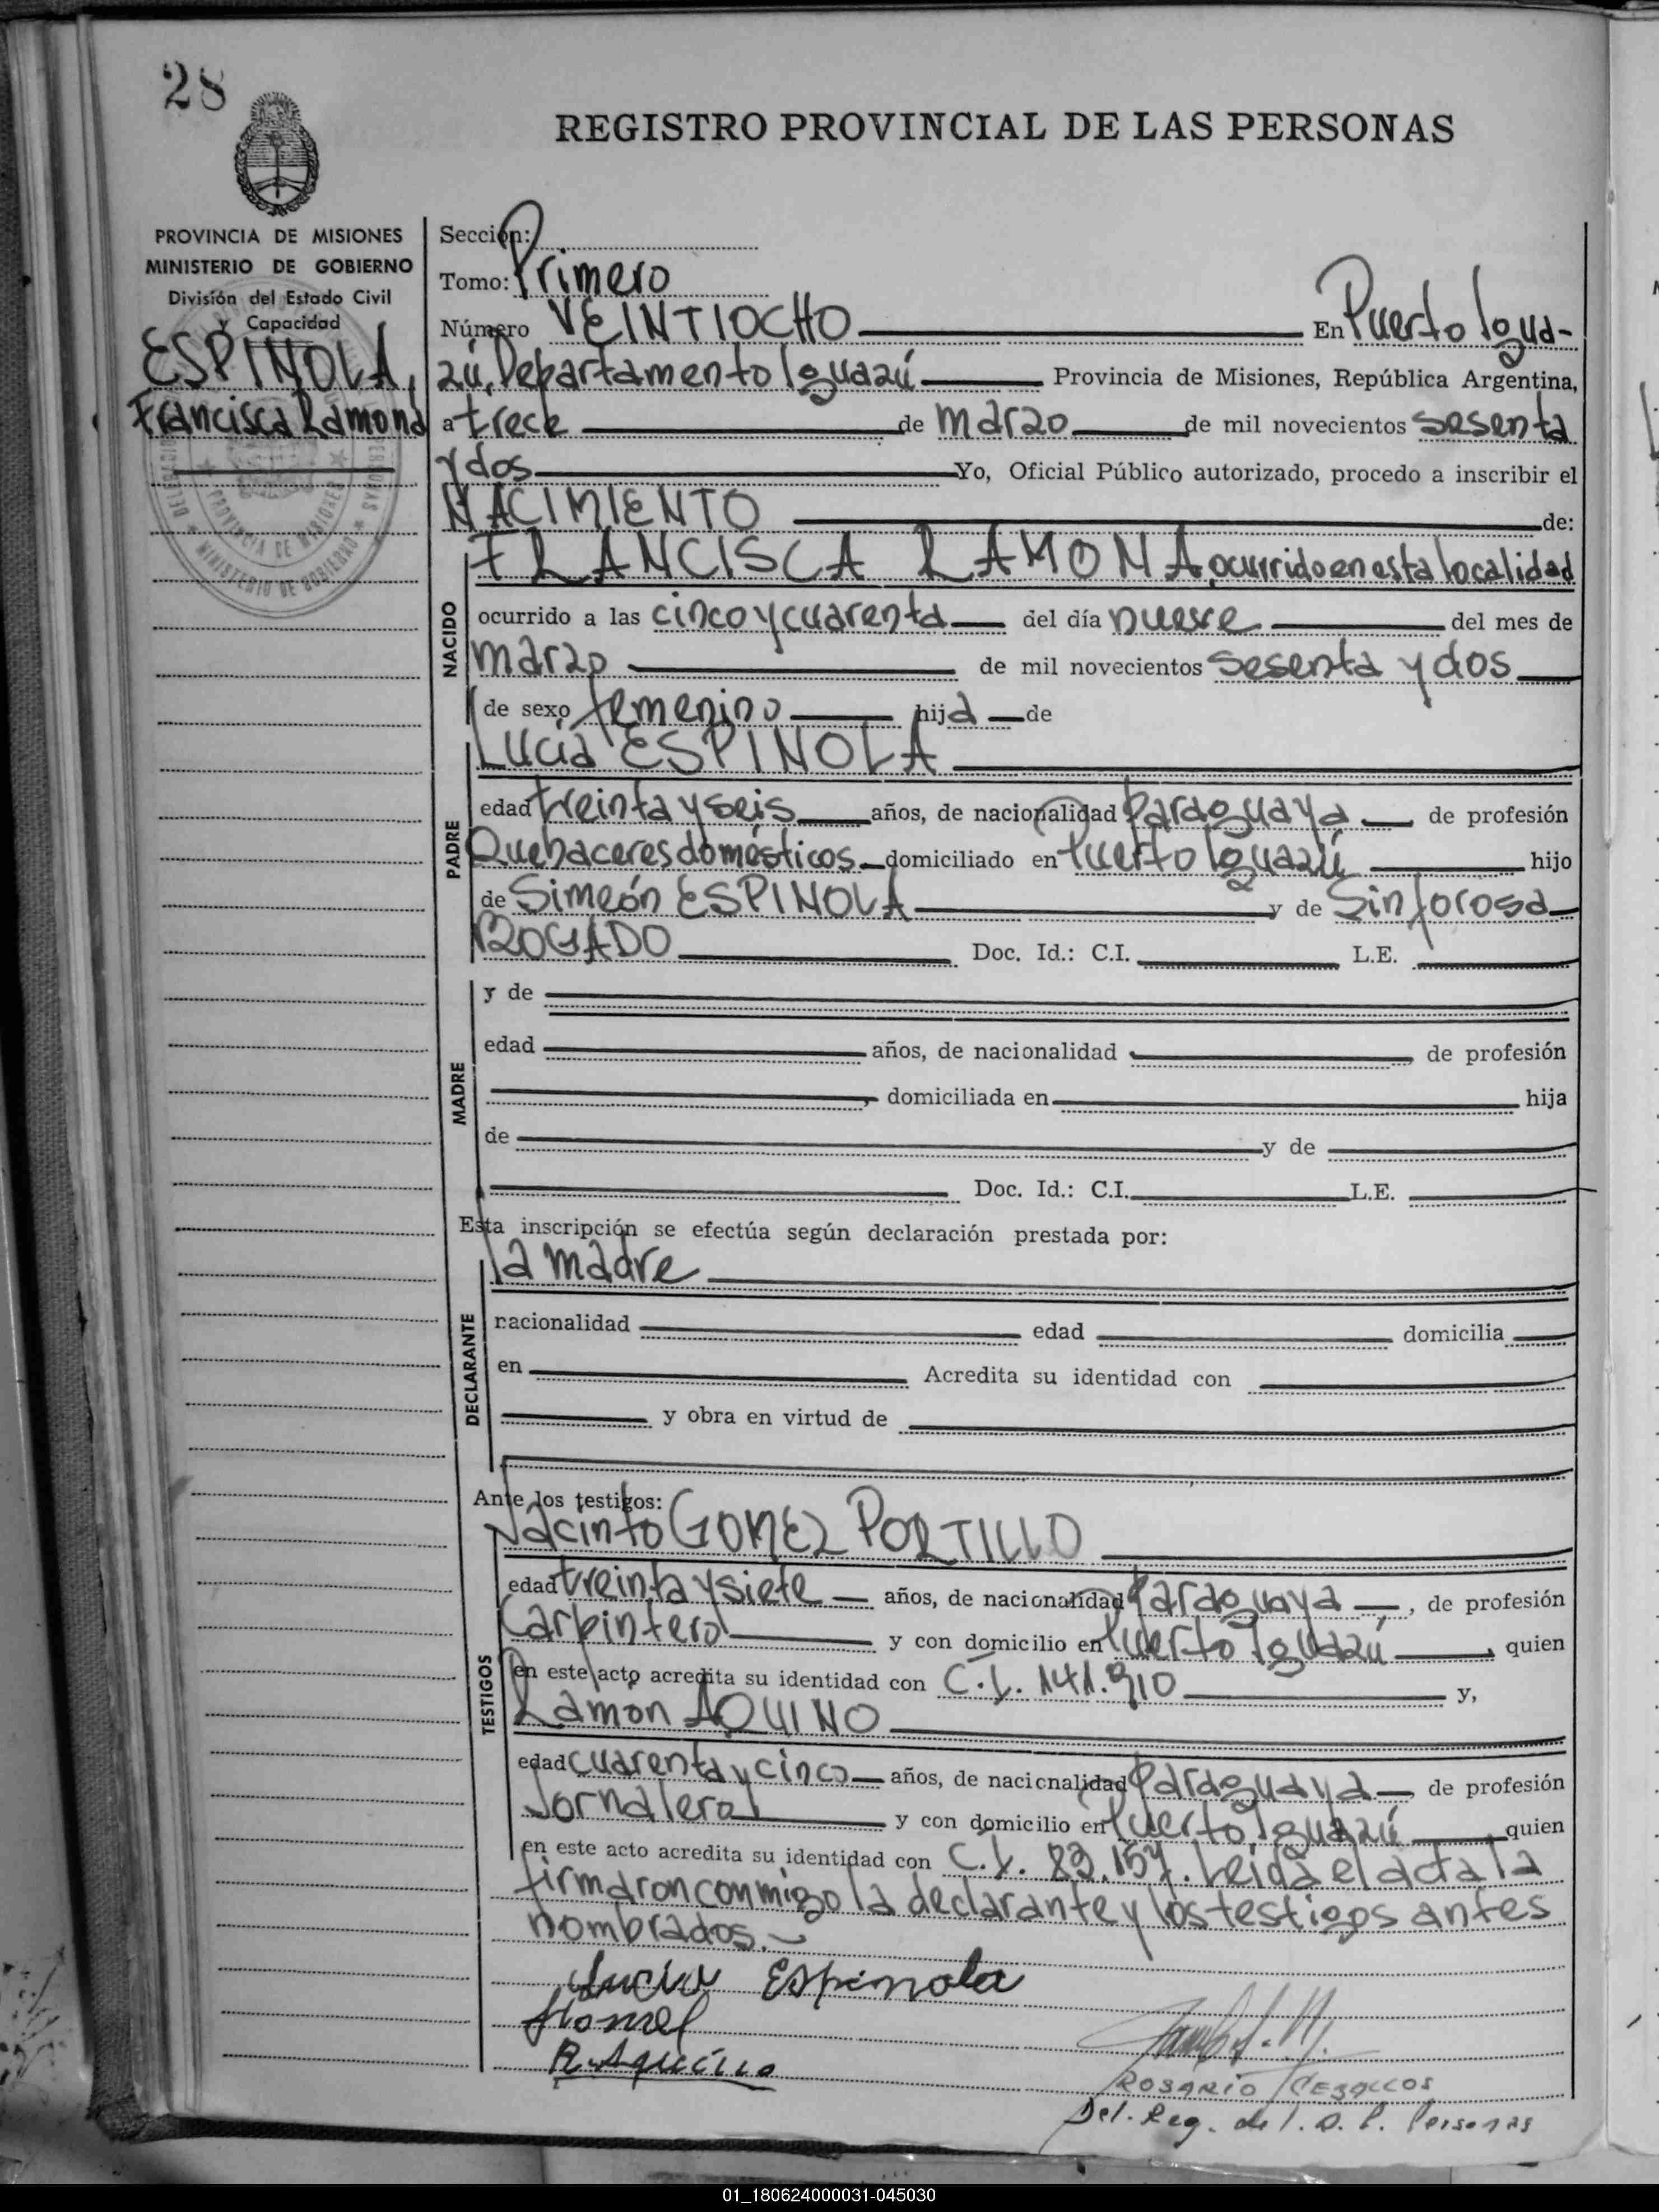 28
REGISTRO PROVINCIAL DE LAS PERSONAS
PROVINCIA DE MISIONES
MINISTERIO DE GOBIERNO
División del Estado Civil
y Capacidad
ESPINOLA,
Francisca Ramona
Sección:
Tomo: Primero
Número VEINTIOCHO En Puerto Igua-
zú, Departamento Iguazú Provincia de Misiones, República Argentina,
a trece de marzo de mil novecientos sesenta
y dos Yo, Oficial Público autorizado, procedo a inscribir el
NACIMIENTO de:
NACIDO
FRANCISCA RAMONA, ocurrido en esta localidad
ocurrido a las cinco y cuarenta del día nueve del mes de
marzo de mil novecientos sesenta y dos
de sexo femenino hija de
PADRE
Lucía ESPINOLA
edad treinta y seis años, de nacionalidad Paraguaya de profesión
Quehaceres domésticos domiciliado en Puerto Iguazú hijo
de Simeón ESPINOLA y de Sinforosa
BOGADO Doc. Id.: C.I. L.E.
MADRE
y de
edad años, de nacionalidad de profesión
, domiciliada en hija
de y de
Doc. Id.: C.I. L.E.
Esta inscripción se efectúa según declaración prestada por:
DECLARANTE
la madre
nacionalidad edad domicilia
en Acredita su identidad con
y obra en virtud de
Ante los testigos:
TESTIGOS
Jacinto GOMEZ PORTILLO
edad treinta y siete años, de nacionalidad Paraguaya, de profesión
Carpintero y con domicilio en Puerto Iguazú, quien
en este acto acredita su identidad con C.I. 141.910 y,
Ramon AQUINO
edad cuarenta y cinco años, de nacionalidad Paraguaya de profesión
Jornalero y con domicilio en Puerto Iguazú, quien
en este acto acredita su identidad con C.I. 83.157. Leida el acta la
firmaron conmigo la declarante y los testigos antes
nombrados.
Lucia Espinola
R. Aquino
ROSARIO
Del. Reg. de l. P. Personas
01_180624000031-045030